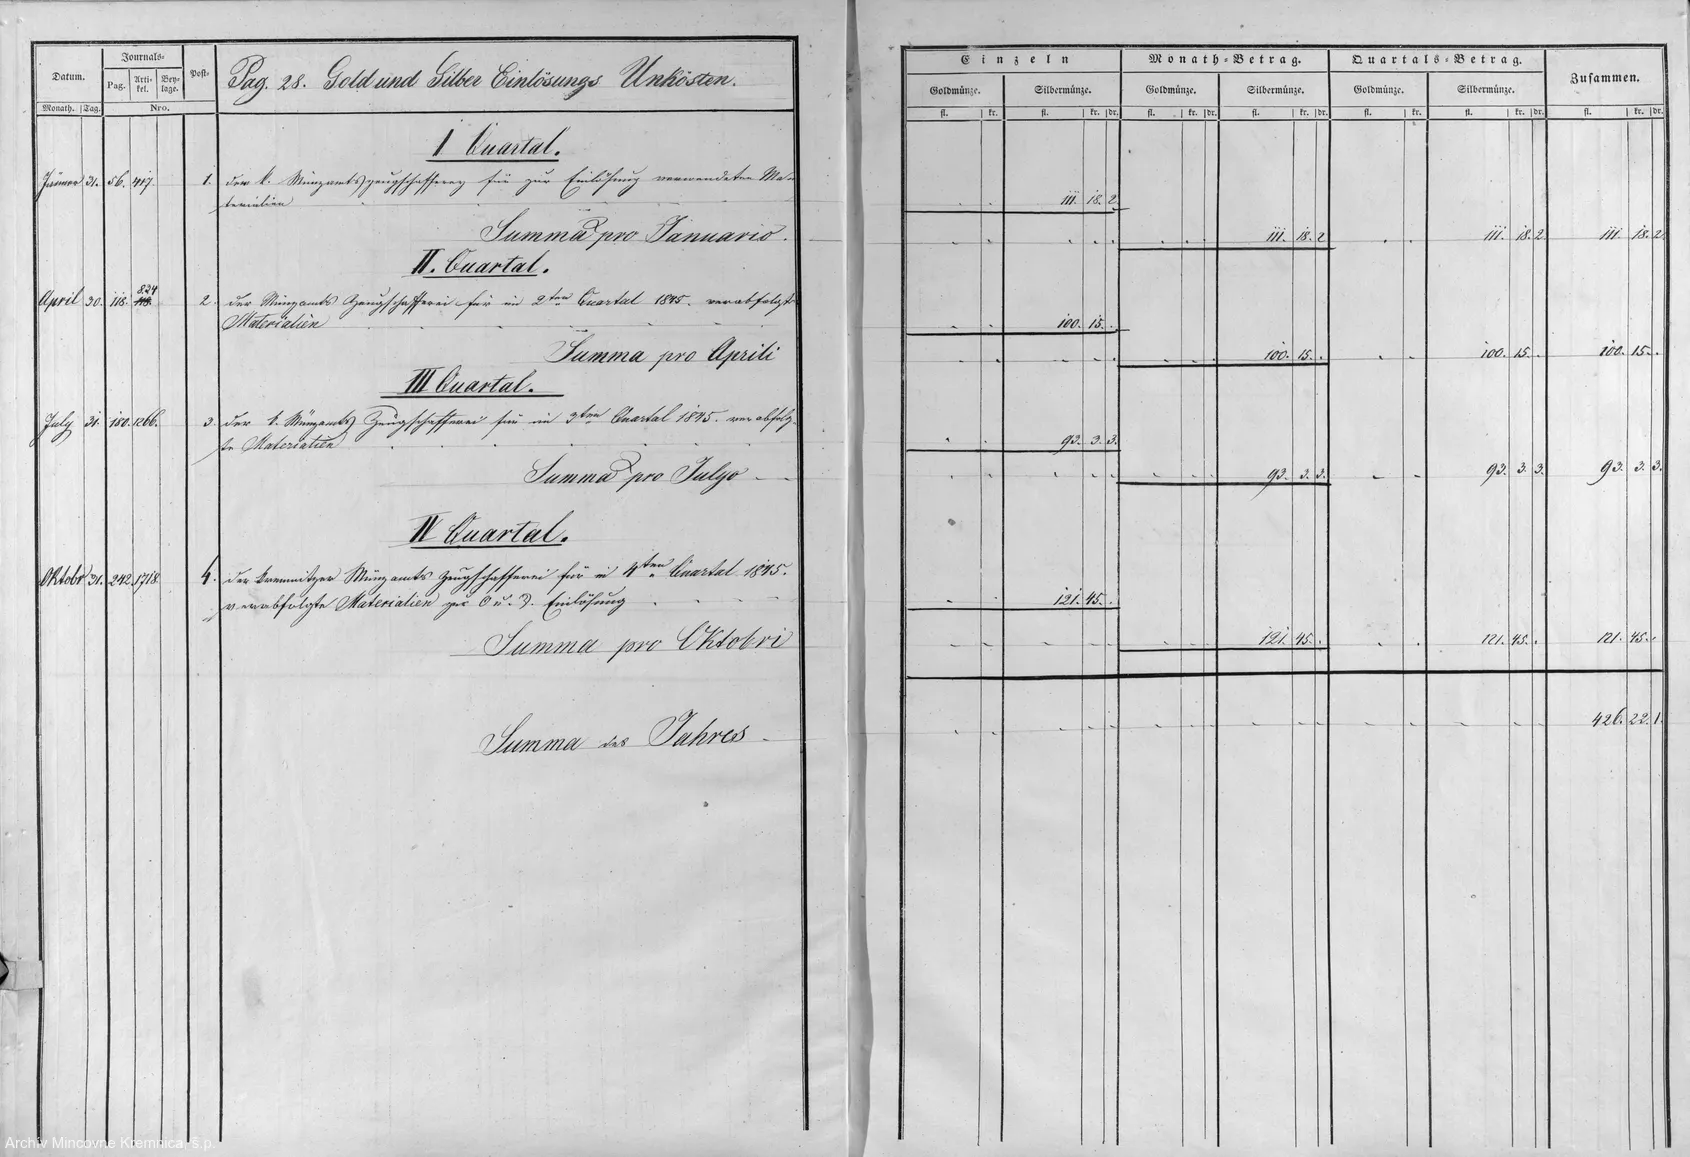 Datum.
Journals-
Pag.
Arti-
kel.
Bey-
lage.
Post-
Monath.
Tag.
Nro.
Pag. 28. Gold und Silber Einlösungs Unkösten.
Einzeln
Monath-Betrag.
Quartals-Betrag.
Zusammen.
Goldmünze. Silbermünze. Goldmünze. Silbermünze. Goldmünze. Silbermünze.
fl. kr. fl. kr. dr. fl. kr. dr. fl. kr. dr. fl. kr. fl. kr. dr. fl. kr. dr.
I Quartal.
Jänner 31. 56. 417. 1. der k. Münzamtszeugschafferey für zur Einlösung verwendeten Ma-
terialien 111. 18. 2.
Summa pro Januario. 111. 18. 2 111. 18. 2. 111. 18. 2.
II. Quartal.
824
April 30. 118. 2. der Münzamts Zeugschafferei für im 2ten Quartal 1845. verabfolgte
Materialien 100. 15. .
Summa pro Aprili 100. 15. . 100. 15. . 100. 15. .
III Quartal.
July 31. 180. 1266. 3. der k. Münzamts Zeugschafferei für im 3ten Quartal 1845. verabfolg-
te Materialien 93. 3. 3.
Summa pro Julyo 93. 3. 3. 93. 3. 3. 93. 3. 3.
IV Quartal.
Oktobr 31. 242. 1718. 4. der kremnitzer Münzamts Zeugschafferei für im 4ten Quartal 1845.
verabfolgte Materialien per G u. S. Einlösung 121. 45. .
Summa pro Oktobri 121. 45. . 121. 45. . 121. 45. .
Summa des Jahres 426. 22. 1.
Archív Mincovne Kremnica, š.p.